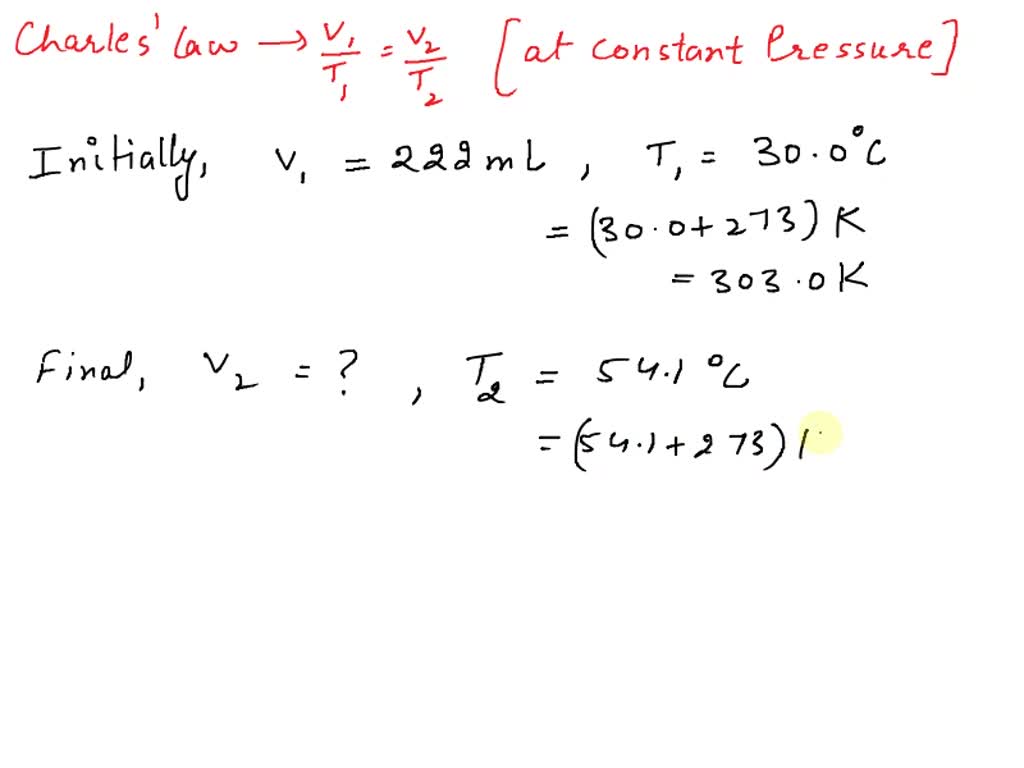 Charles' law → V₁/T₁ = V₂/T₂ [at constant Pressure]
Initially, V₁ = 222 mL, T₁ = 30.0°C
= (30.0+273) K
= 303.0 K
Final, V₂ = ?, T₂ = 54.1 °C
= (54.1+273)